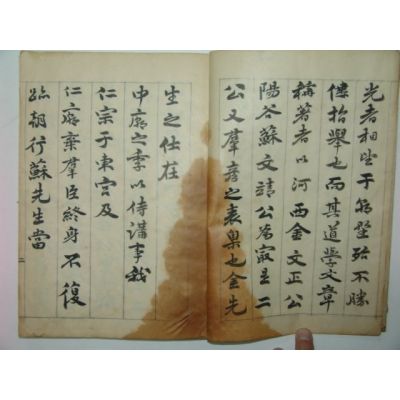 光者相望于野殆不勝
僂指擧也而其道學文章
稱著者以河西金文正公
陽谷蘇文靖公爲㝡是二
公又羣彦之表臬也金先
生之仕在
中廟之季以侍講事我
仁宗于東宮及
仁廟棄羣臣終身不復
跡朝行蘇先生當
二